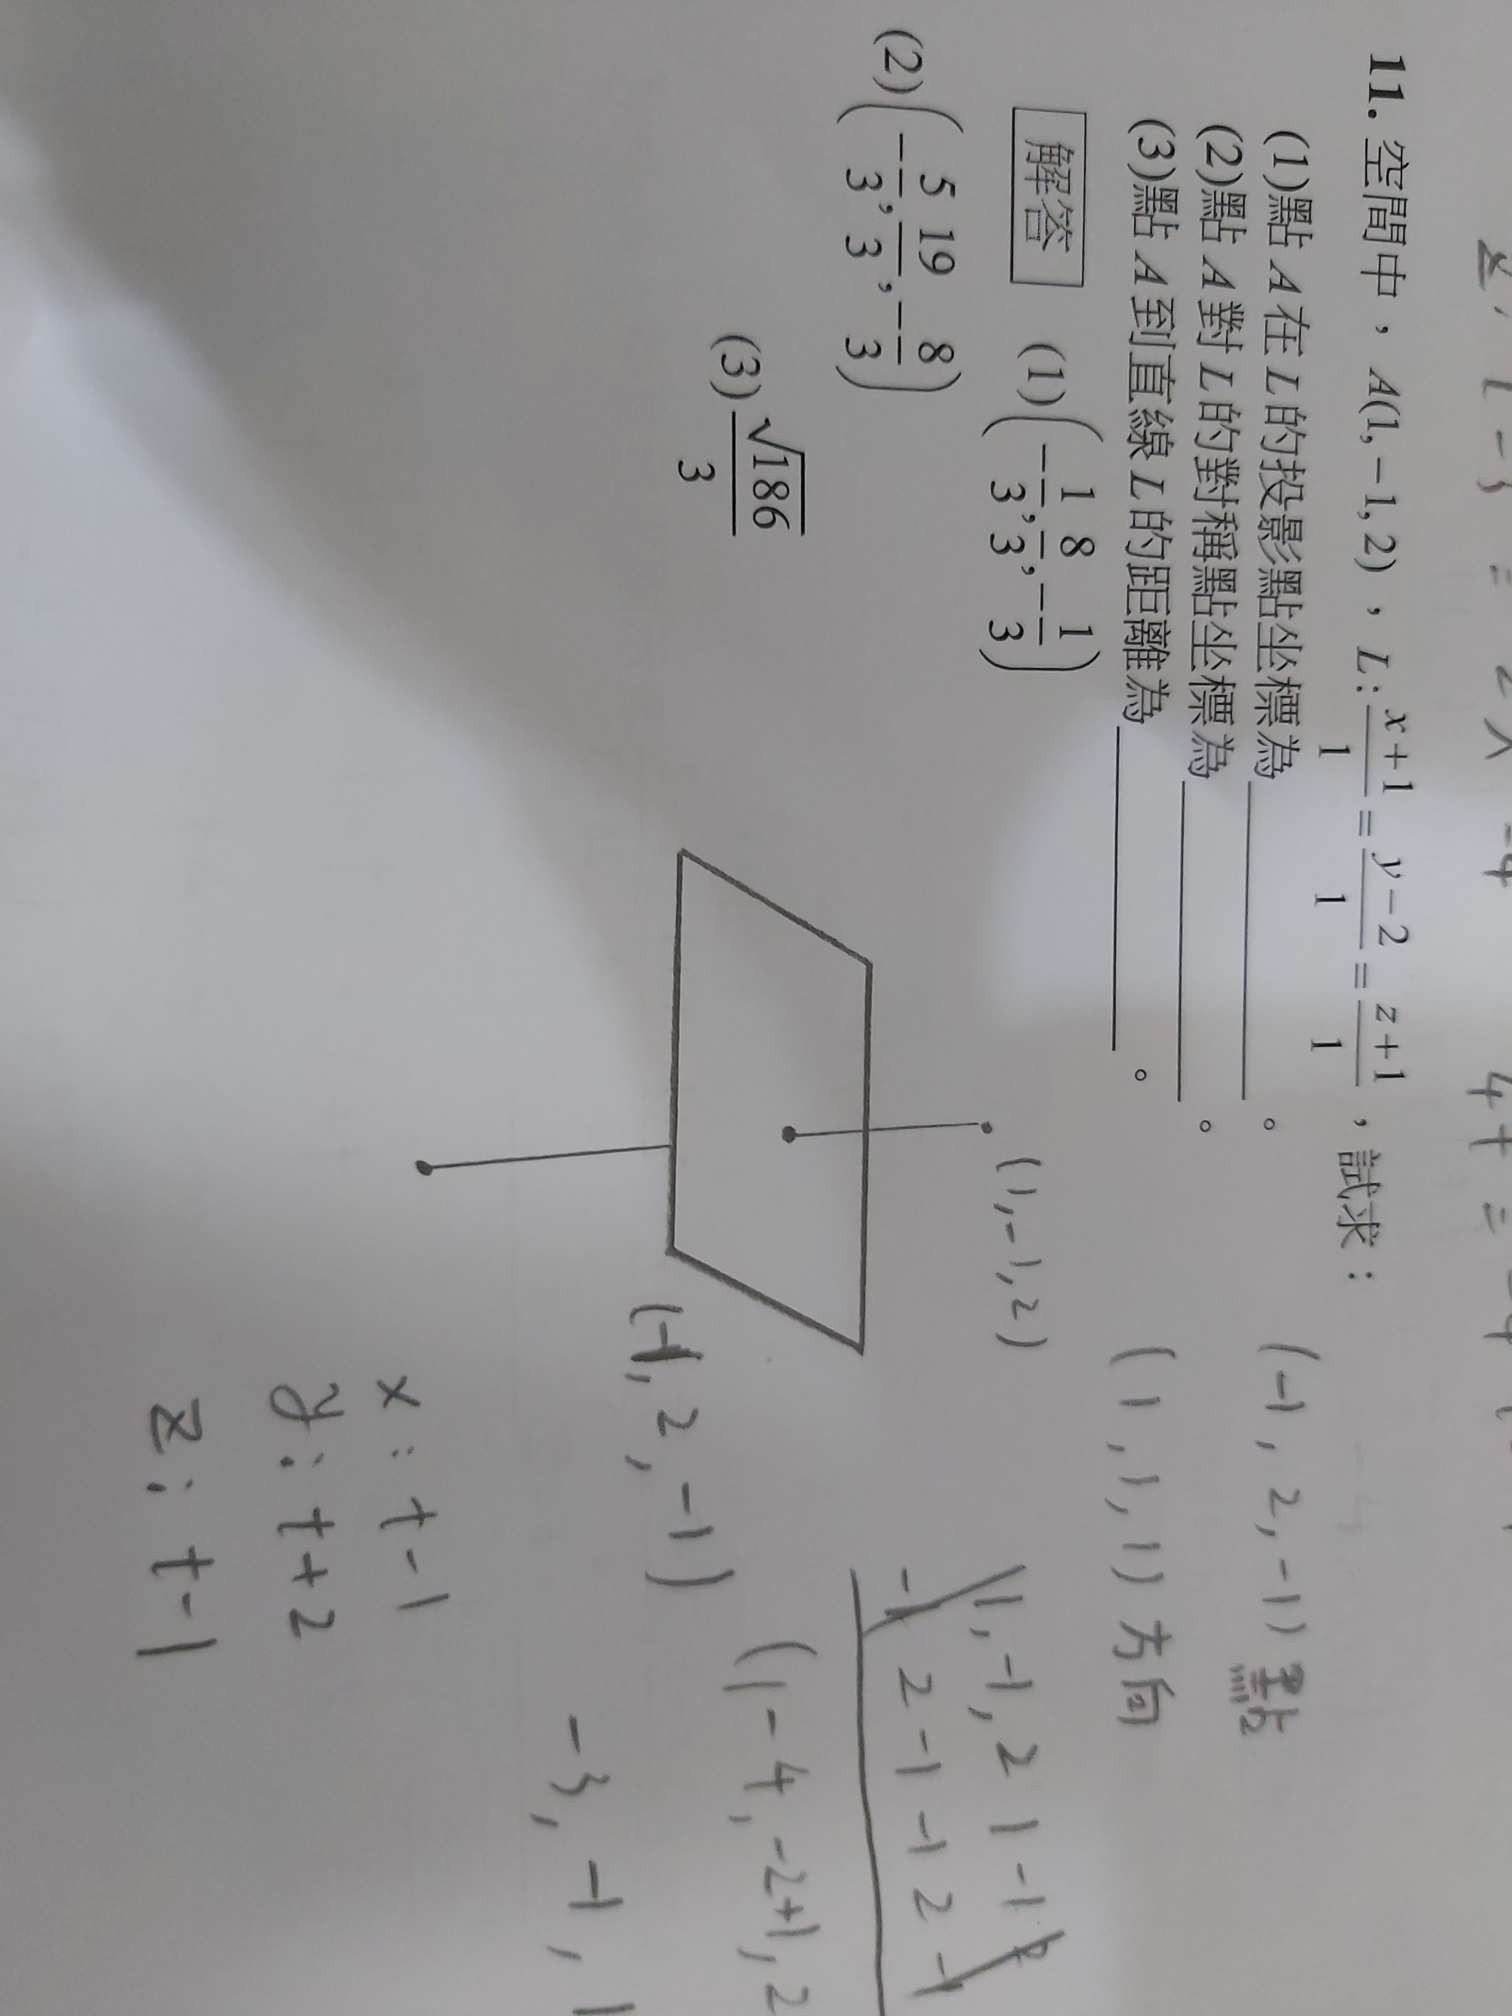 11. 空間中，A(1, −1, 2)，L: \frac{x+1}{1} = \frac{y−2}{1} = \frac{z+1}{1}，試求：
(1)點 A 在 L 的投影點坐標為__________。
(2)點 A 對 L 的對稱點坐標為__________。
(3)點 A 到直線 L 的距離為__________。
解答 (1)(−\frac{1}{3}, \frac{8}{3}, −\frac{1}{3})
(2)(−\frac{5}{3}, \frac{19}{3}, −\frac{8}{3})
(3)\frac{\sqrt{186}}{3}
(−1, 2, −1) 點
(1, 1, 1) 方向
(1, −1, 2)
1, −1, 2 1 −1
−1 2 −1 −1 2 −1
(1−4, −2+1, 2
−3, −1, 1
(−1, 2, −1)
x: t−1
y: t+2
z: t−1